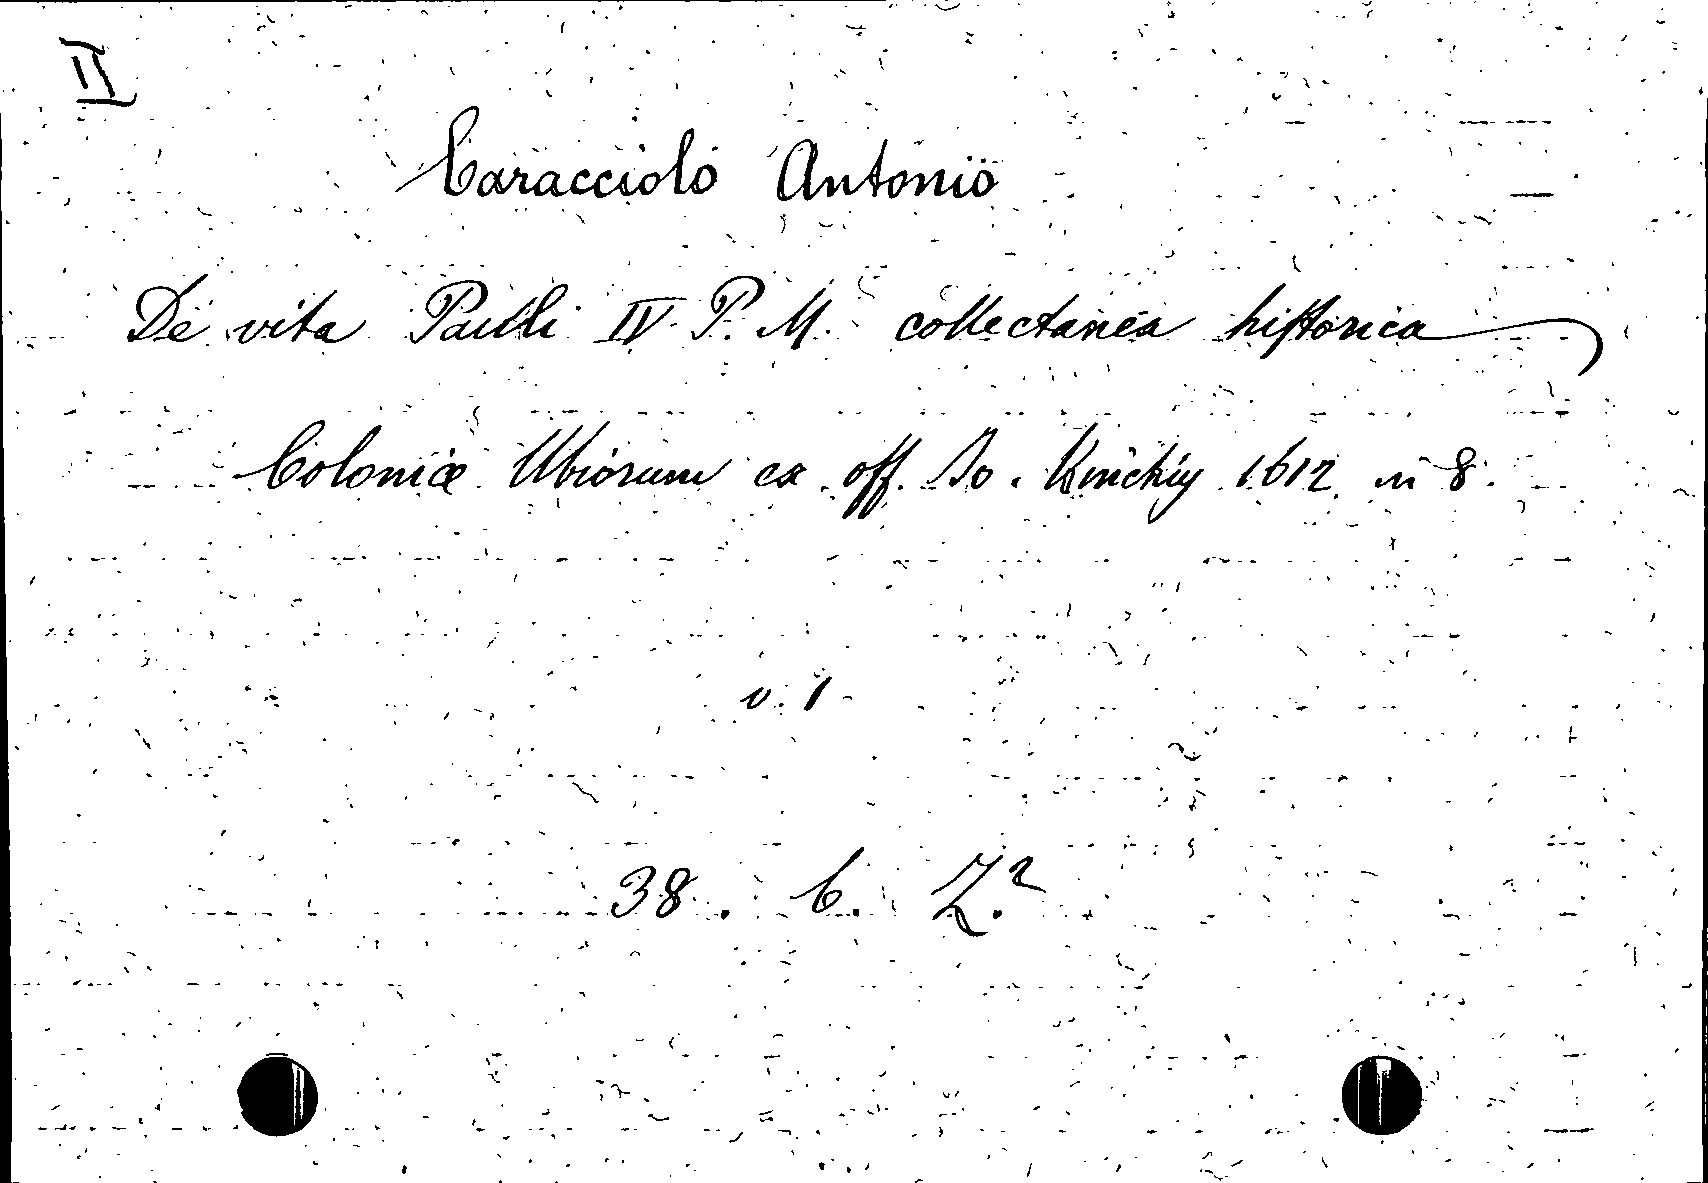 II
Caracciolo Antonio
De vita Pauli IV P. M. collectanea hiſtorica
Coloniæ Ubiorum ex off. Jo. Kinckij 1612 in 8.
v. 1
38. 6. Z.²